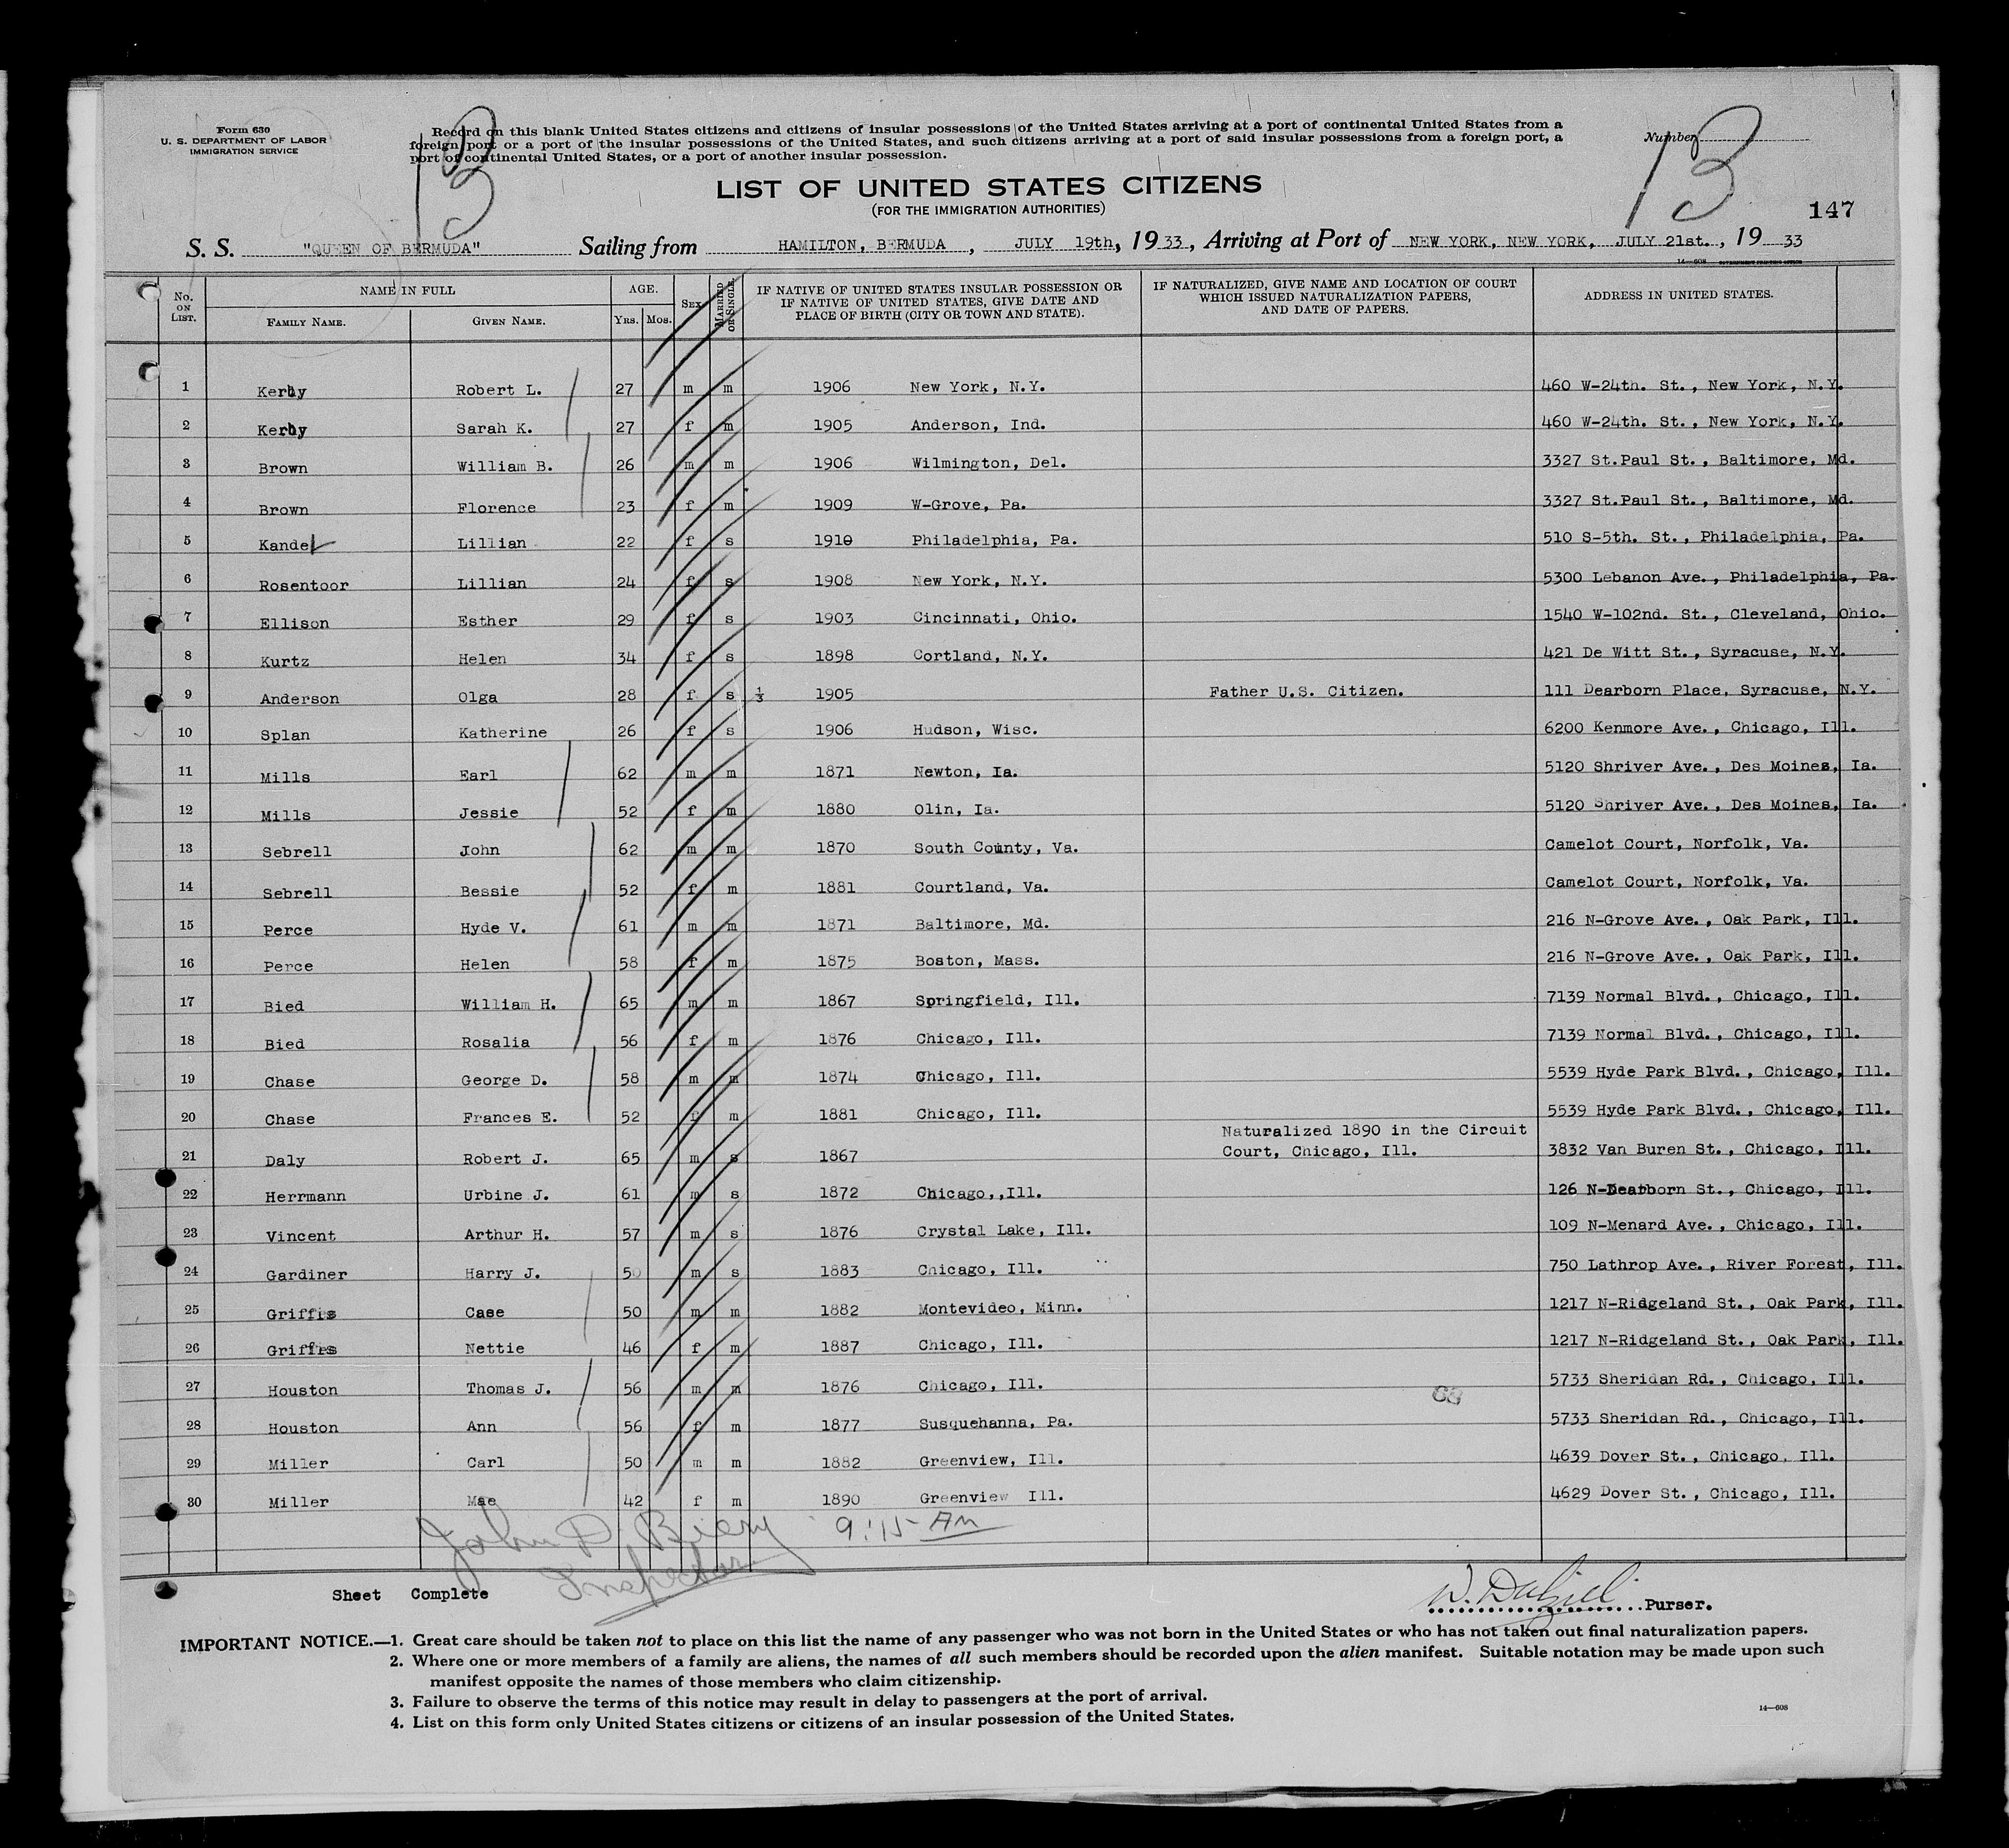 Form 630
U. S. DEPARTMENT OF LABOR
IMMIGRATION SERVICE
Record on this blank United States citizens and citizens of insular possessions of the United States arriving at a port of continental United States from a
foreign port or a port of the insular possessions of the United States, and such citizens arriving at a port of said insular possessions from a foreign port, a
port of continental United States, or a port of another insular possession.
Number
13
13
LIST OF UNITED STATES CITIZENS
(FOR THE IMMIGRATION AUTHORITIES)
147
S. S. "QUEEN OF BERMUDA" Sailing from HAMILTON, BERMUDA, JULY 19th, 1933, Arriving at Port of NEW YORK, NEW YORK, JULY 21st., 1933
14—608 GOVERNMENT PRINTING OFFICE
No. ON LIST. NAME IN FULL FAMILY NAME. GIVEN NAME. AGE. YRS. MOS. SEX MARRIED OR SINGLE IF NATIVE OF UNITED STATES INSULAR POSSESSION OR IF NATIVE OF UNITED STATES, GIVE DATE AND PLACE OF BIRTH (CITY OR TOWN AND STATE). IF NATURALIZED, GIVE NAME AND LOCATION OF COURT WHICH ISSUED NATURALIZATION PAPERS, AND DATE OF PAPERS. ADDRESS IN UNITED STATES.
1 Kerby Robert L. 27 m m 1906 New York, N.Y. 460 W-24th. St., New York, N.Y.
2 Kerby Sarah K. 27 f m 1905 Anderson, Ind. 460 W-24th. St., New York, N.Y.
3 Brown William B. 26 m m 1906 Wilmington, Del. 3327 St.Paul St., Baltimore, Md.
4 Brown Florence 23 f m 1909 W-Grove, Pa. 3327 St.Paul St., Baltimore, Md.
5 Kandel Lillian 22 f s 1910 Philadelphia, Pa. 510 S-5th. St., Philadelphia, Pa.
6 Rosentoor Lillian 24 f s 1908 New York, N.Y. 5300 Lebanon Ave., Philadelphia, Pa.
7 Ellison Esther 29 f s 1903 Cincinnati, Ohio. 1540 W-102nd. St., Cleveland, Ohio.
8 Kurtz Helen 34 f s 1898 Cortland, N.Y. 421 De Witt St., Syracuse, N.Y.
9 Anderson Olga 28 f s 1/3 1905 Father U.S. Citizen. 111 Dearborn Place, Syracuse, N.Y.
10 Splan Katherine 26 f s 1906 Hudson, Wisc. 6200 Kenmore Ave., Chicago, Ill.
11 Mills Earl 62 m m 1871 Newton, Ia. 5120 Shriver Ave., Des Moines, Ia.
12 Mills Jessie 52 f m 1880 Olin, Ia. 5120 Shriver Ave., Des Moines, Ia.
13 Sebrell John 62 m m 1870 South County, Va. Camelot Court, Norfolk, Va.
14 Sebrell Bessie 52 f m 1881 Courtland, Va. Camelot Court, Norfolk, Va.
15 Perce Hyde V. 61 m m 1871 Baltimore, Md. 216 N-Grove Ave., Oak Park, Ill.
16 Perce Helen 58 f m 1875 Boston, Mass. 216 N-Grove Ave., Oak Park, Ill.
17 Bied William H. 65 m m 1867 Springfield, Ill. 7139 Normal Blvd., Chicago, Ill.
18 Bied Rosalia 56 f m 1876 Chicago, Ill. 7139 Normal Blvd., Chicago, Ill.
19 Chase George D. 58 m m 1874 Chicago, Ill. 5539 Hyde Park Blvd., Chicago, Ill.
20 Chase Frances E. 52 f m 1881 Chicago, Ill. 5539 Hyde Park Blvd., Chicago, Ill.
Naturalized 1890 in the Circuit
21 Daly Robert J. 65 m s 1867 Court, Chicago, Ill. 3832 Van Buren St., Chicago, Ill.
22 Herrmann Urbine J. 61 m s 1872 Chicago,,Ill. 126 N-Dearborn St., Chicago, Ill.
23 Vincent Arthur H. 57 m s 1876 Crystal Lake, Ill. 109 N-Menard Ave., Chicago, Ill.
24 Gardiner Harry J. 50 m s 1883 Chicago, Ill. 750 Lathrop Ave., River Forest, Ill.
25 Griffis Case 50 m m 1882 Montevideo, Minn. 1217 N-Ridgeland St., Oak Park, Ill.
26 Griffis Nettie 46 f m 1887 Chicago, Ill. 1217 N-Ridgeland St., Oak Park, Ill.
27 Houston Thomas J. 56 m m 1876 Chicago, Ill. 5733 Sheridan Rd., Chicago, Ill.
28 Houston Ann 56 f m 1877 Susquehanna, Pa. 5733 Sheridan Rd., Chicago, Ill.
29 Miller Carl 50 m m 1882 Greenview, Ill. 4639 Dover St., Chicago, Ill.
30 Miller Mae 42 f m 1890 Greenview Ill. 4629 Dover St., Chicago, Ill.
John D. Biery 9:15 AM
Inspector
Sheet Complete
Purser.
IMPORTANT NOTICE.—1. Great care should be taken not to place on this list the name of any passenger who was not born in the United States or who has not taken out final naturalization papers.
2. Where one or more members of a family are aliens, the names of all such members should be recorded upon the alien manifest. Suitable notation may be made upon such
manifest opposite the names of those members who claim citizenship.
3. Failure to observe the terms of this notice may result in delay to passengers at the port of arrival.
4. List on this form only United States citizens or citizens of an insular possession of the United States.
14—608